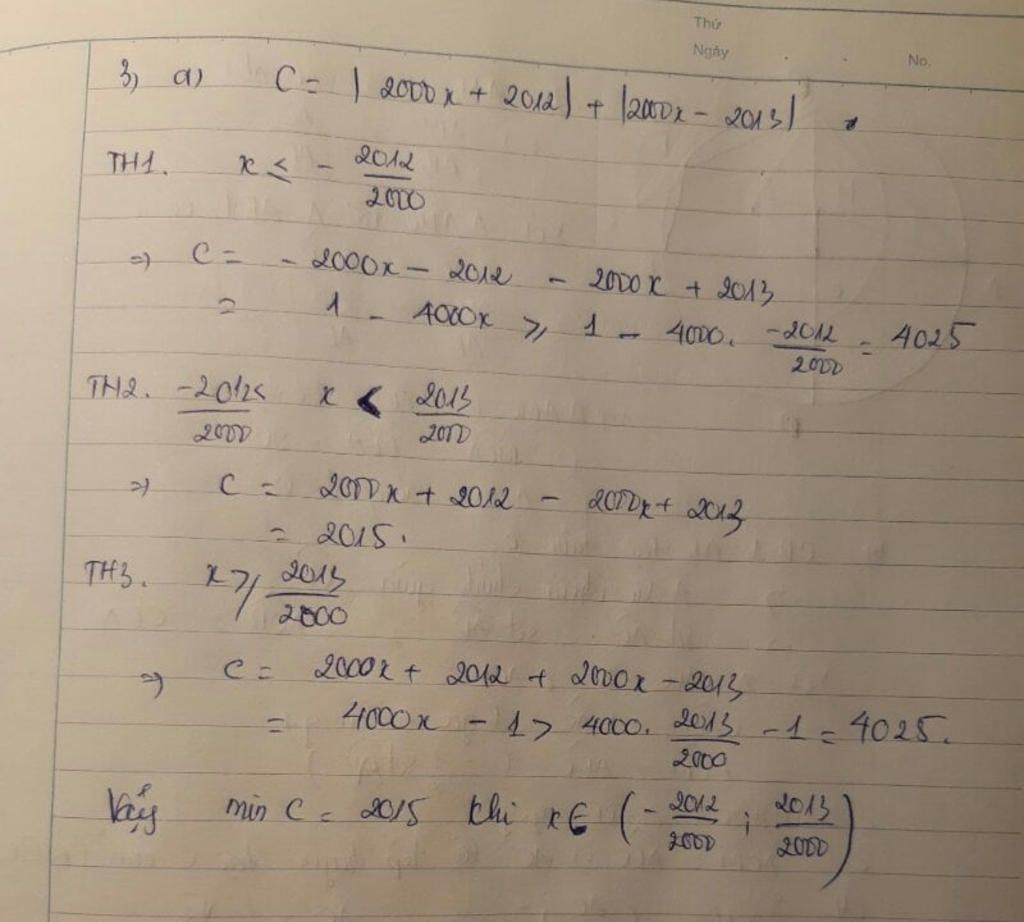 Thứ
Ngày . . No.
3) a) C = | 2000x + 2012| + |2000x - 2013|
TH1. x ≤ - 2012/2000
=> C = - 2000x - 2012 - 2000x + 2013
= 1 - 4000x ≥ 1 - 4000. -2012/2000 = 4025
TH2. -2012/2000 < x < 2013/2000
=> C = 2000x + 2012 - 2000x + 2013
= 2015.
TH3. x ≥ 2013/2000
=> C = 2000x + 2012 + 2000x - 2013
= 4000x - 1 > 4000. 2013/2000 - 1 = 4025.
Vậy min C = 2015 khi x ∈ (- 2012/2000 ; 2013/2000)